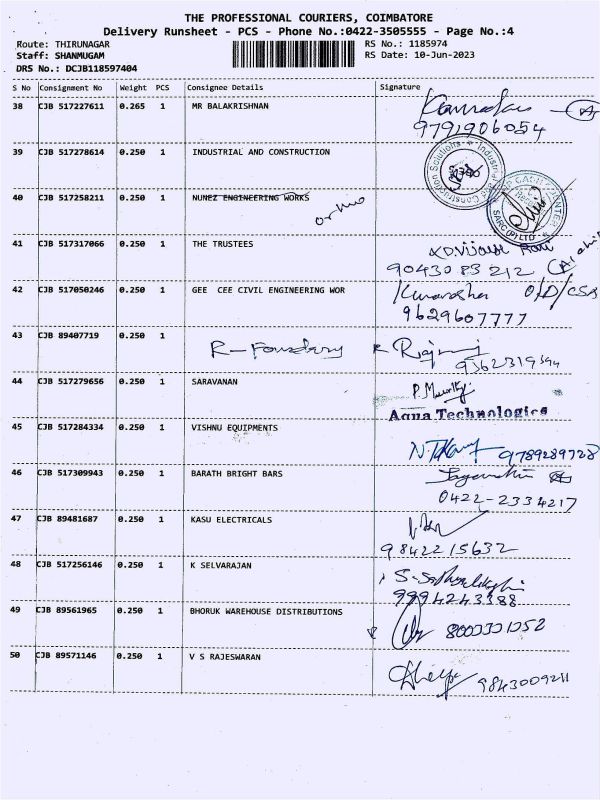 THE PROFESSIONAL COURIERS, COIMBATORE
Delivery Runsheet - PCS - Phone No.:0422-3505555 - Page No.:4
Route: THIRUNAGAR RS No.: 1185974
Staff: SHANMUGAM RS Date: 10-Jun-2023
DRS No.: DCJB118597404
S No Consignment No Weight PCS Consignee Details Signature
38 CJB 517227611 0.265 1 MR BALAKRISHNAN
9791906054
39 CJB 517278614 0.250 1 INDUSTRIAL AND CONSTRUCTION
40 CJB 517258211 0.250 1 NUNEZ ENGINEERING WORKS
SARC (P) LTD
41 CJB 517317066 0.250 1 THE TRUSTEES
9043083212
42 CJB 517050246 0.250 1 GEE CEE CIVIL ENGINEERING WOR
9629607777
43 CJB 89407719 0.250 1
R-Foundary
44 CJB 517279656 0.250 1 SARAVANAN
P. Murthy
Aqua Technologies
45 CJB 517284334 0.250 1 VISHNU EQUIPMENTS
9789289728
46 CJB 517309943 0.250 1 BARATH BRIGHT BARS
0422-2334217
47 CJB 89481687 0.250 1 KASU ELECTRICALS
9842215632
48 CJB 517256146 0.250 1 K SELVARAJAN
9994243388
49 CJB 89561965 0.250 1 BHORUK WAREHOUSE DISTRIBUTIONS
50 CJB 89571146 0.250 1 V S RAJESWARAN
9843009211